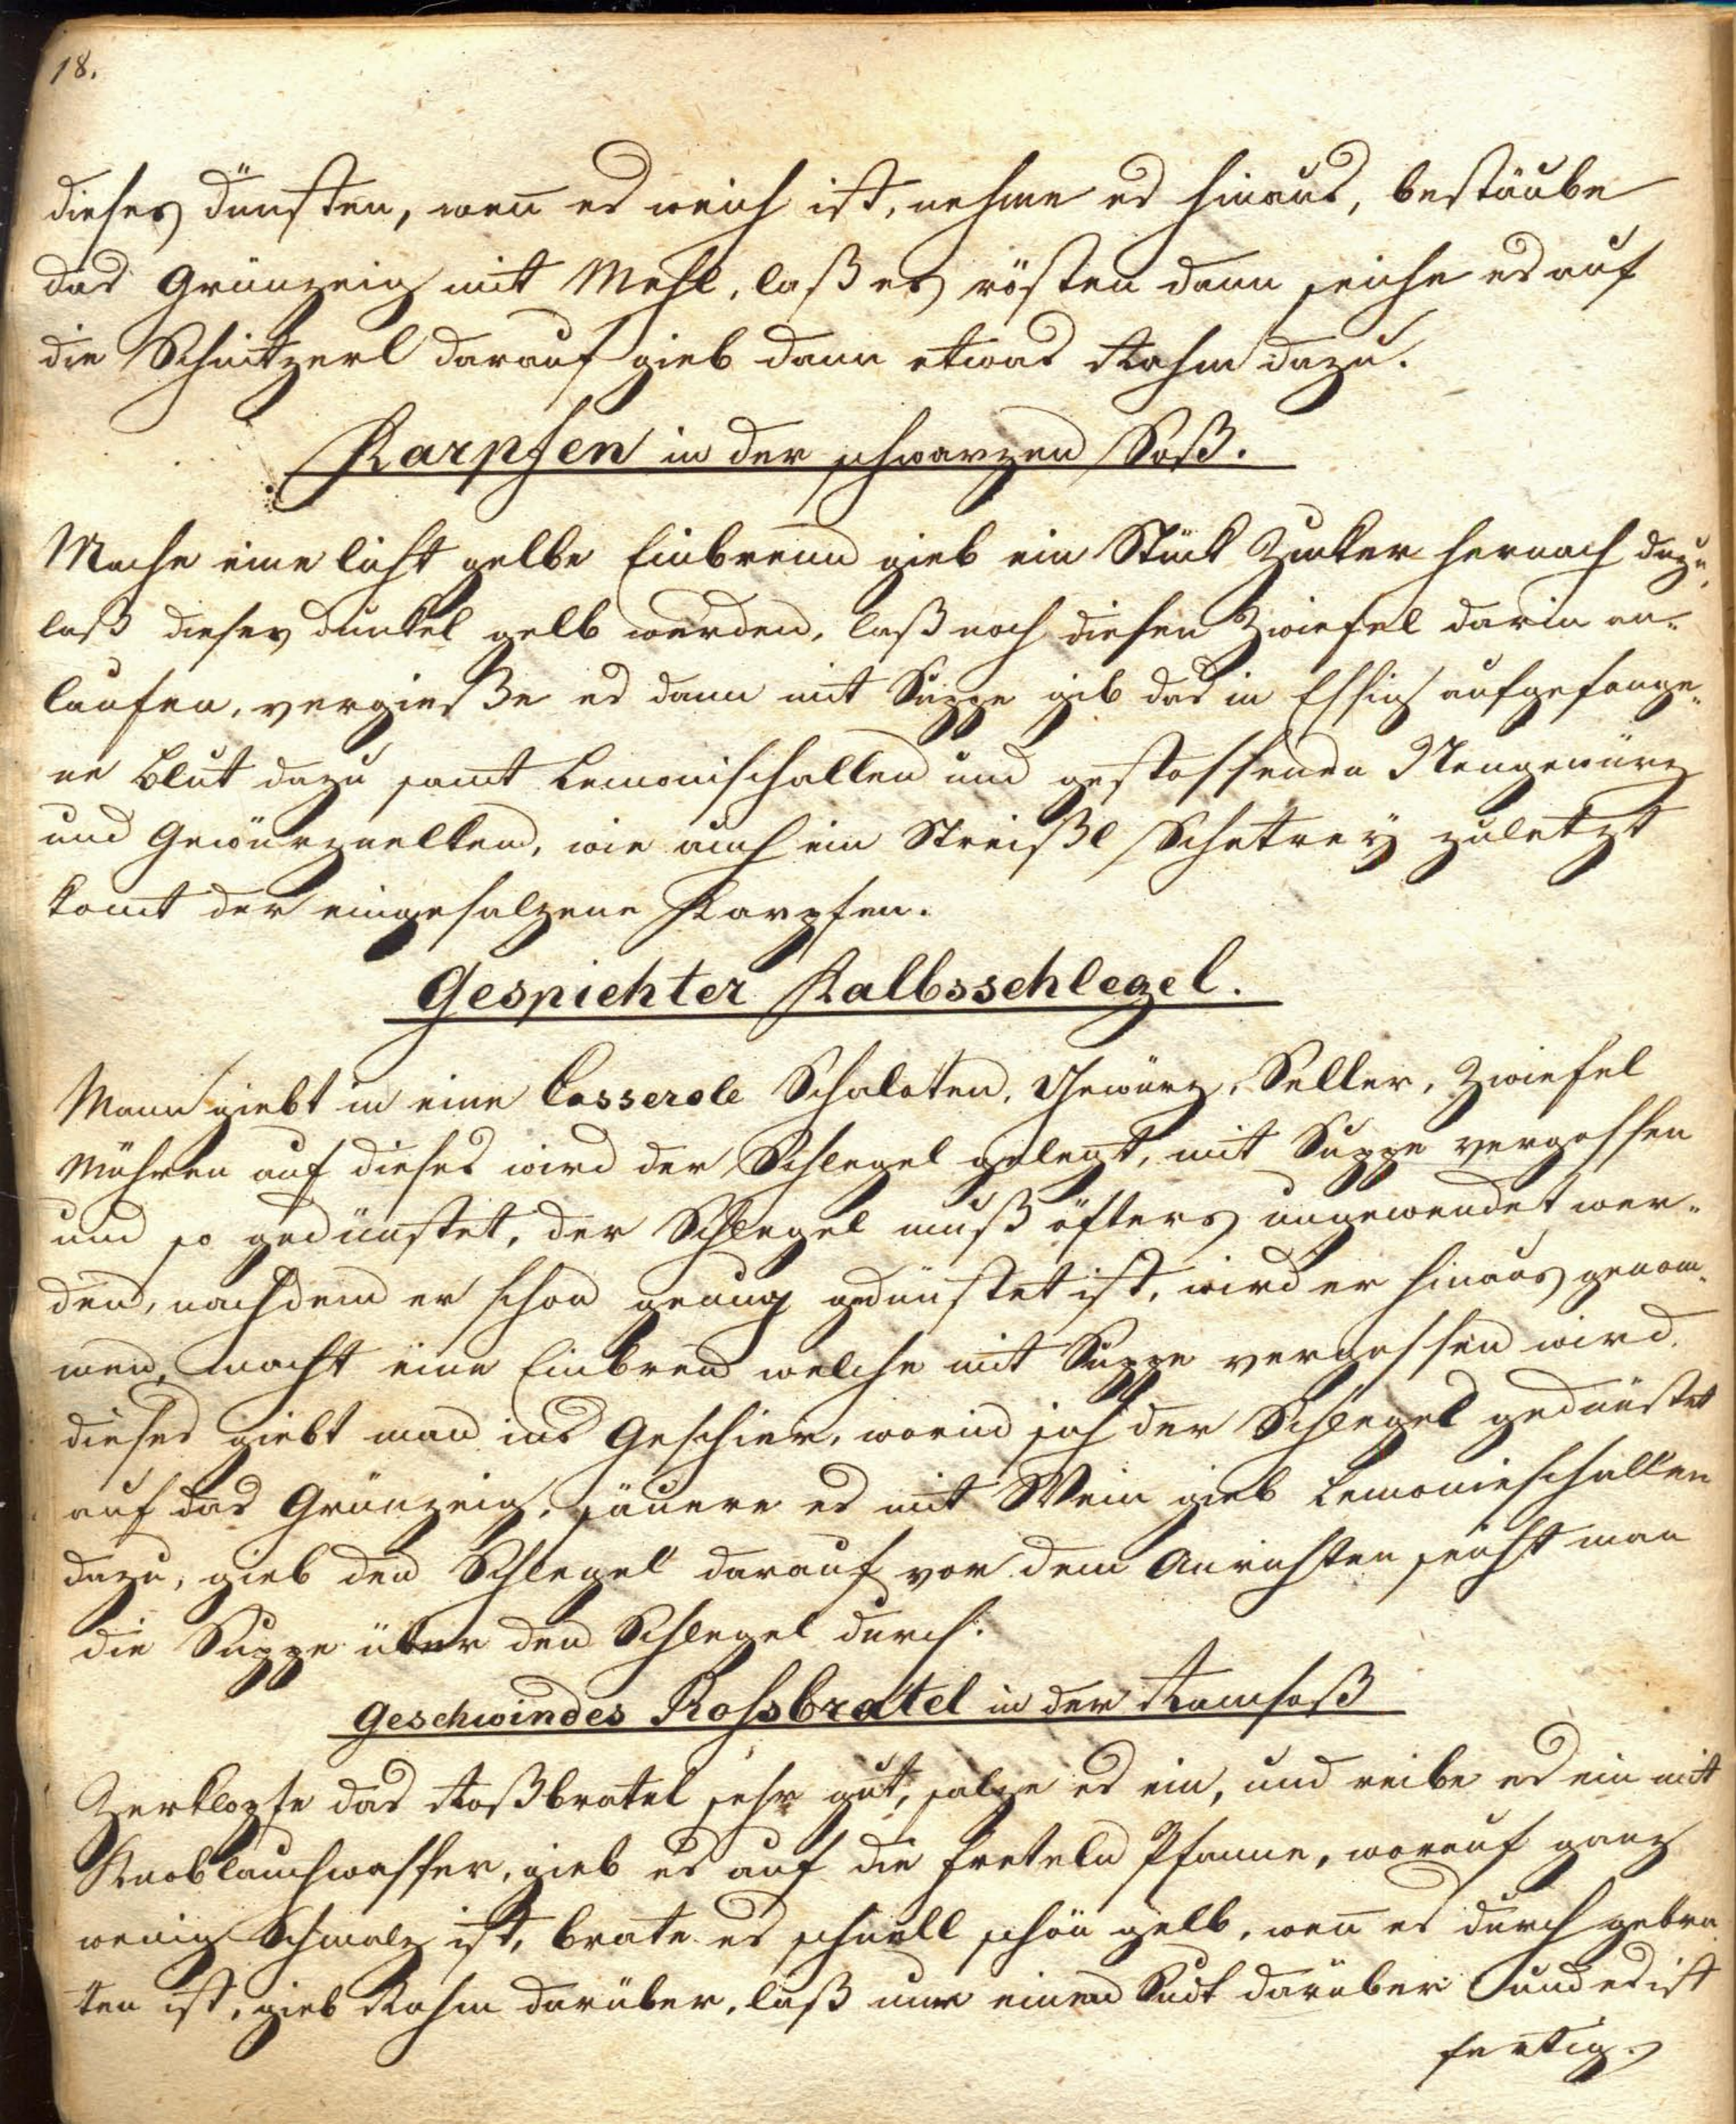 18.
dieses dünsten, weñ es weich ist, nehme es hinaus, bestäube
das Grünzeig mit Mehl, laß es rösten dann seihe es auf
die Schnitzerl darauf gieb dann etwas Rahm dazu.
Karpfen in der schwarzen Soß.
Mache eine licht gelbe Einbrenn gieb ein Stük Zucker hernach dazu,
laß dieses dunkel gelb werden, laß noch diesen Zwiefel darin an-
laufen, vergieße es dann mit Suppe gib das in Essig aufgefange-
ne Blut dazu samt Lemonischallen und gestossenen Neugewürz
und Gewürznelken, wie auch ein Streißl Schetrey zuletzt
komt der eingesalzene Karpfen.
Gespickter Kalbsschlegel.
Mann giebt in eine Casserole Schaloten, Gewürz, Seller, Zwiefel
Möhren auf dieses wird der Schlegel gelegt, mit Suppe vergossen
und so gedünstet, der Schlegel muß öfters ungewendet wer-
den, nachdem er schon genug gedünstet ist, wird er hinaus genom-
men, macht eine Einbren welche mit Suppe vergossen wird.
dieses giebt man ins Geschier, worin sich der Schlegel gedünstet
auf das Grünzeig, säuere es mit Wein gieb Lemonieschallen
dazu, gieb den Schlegel darauf vor dem Anrichten seiht man
die Suppe über den Schlegel durch.
Geschwindes Rossbratel in der Ramsoß
Zerklopfe das Roßbratel sehr gut, salze es ein, und reibe es ein mit
Knoblauchwasser, gieb es auf die Pfanne, worauf ganz
wenig Schmalz ist, brate es schnell schön gelb, weñ es durch gebra
ten ist, gieb Rahm darüber, laß nur einen Sudt darüber und es ist
fertig.